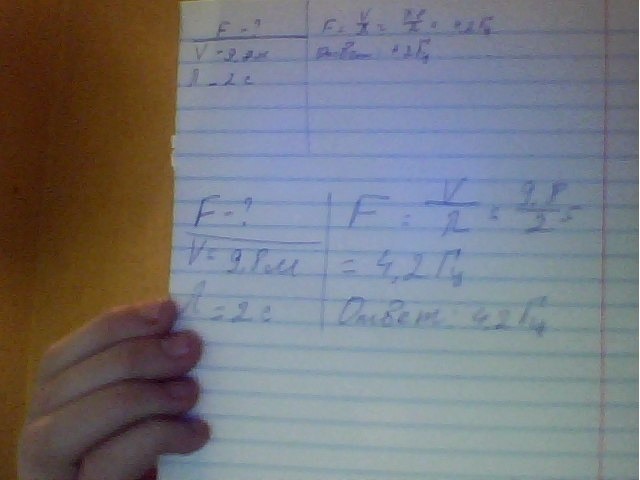 F - ?
F = V/λ = 9,8/2 = 4,2 Гц
V = 9,8 м
Ответ: 4,2 Гц
λ = 2 с
F - ?
F = V/λ = 9,8/2 =
V = 9,8 м
= 4,2 Гц
λ = 2 с
Ответ: 4,2 Гц